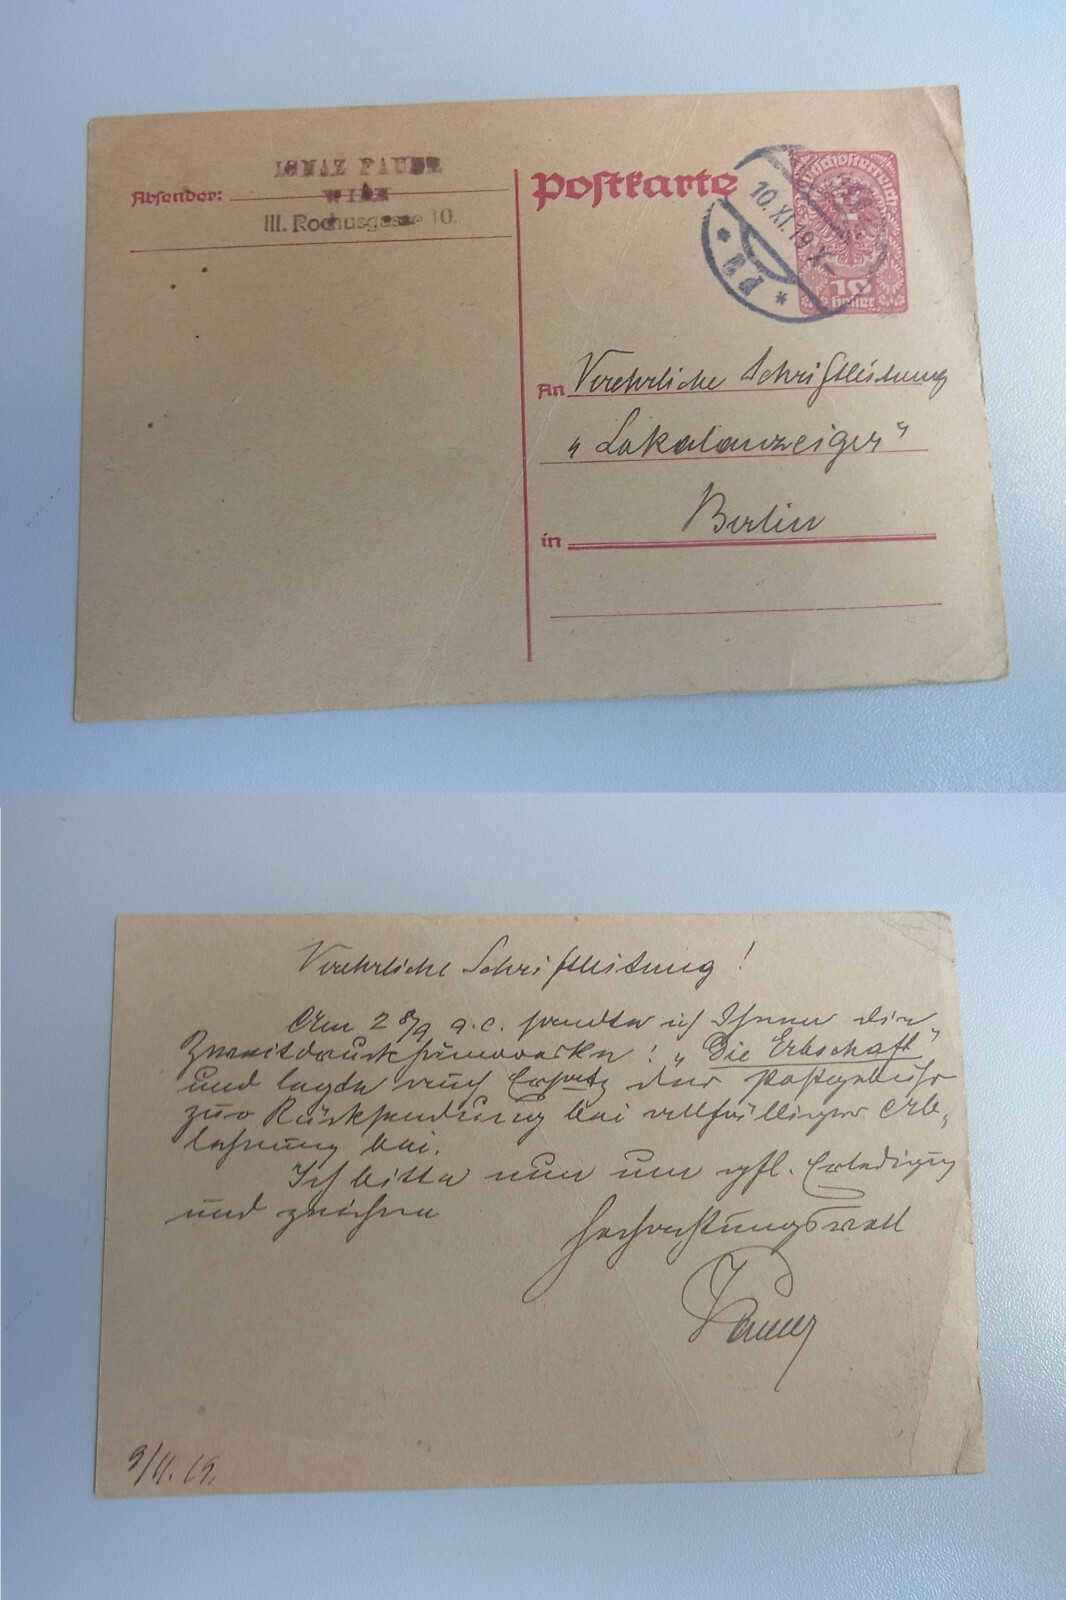 IGNAZ
Absender:
WIEN
III. Rochusgasse 10.
Postkarte
Deutschösterreich
10. XI. 19 X
10
heller
An Verehrliche Schriftleitung
"Lokalanzeiger"
in Berlin
Verehrliche Schriftleitung!
Am 28/9 a.c. sandte ich Ihnen die
Zweitdruckhumoreske: "Die Erbschaft"
und legte auch Ersatz der Postgebühr
zur Rücksendung bei allfälliger Ab-
lehnung bei.
Ich bitte nun um gfl. Erledigung
und zeichne
hochachtungsvoll
9/11. 19.